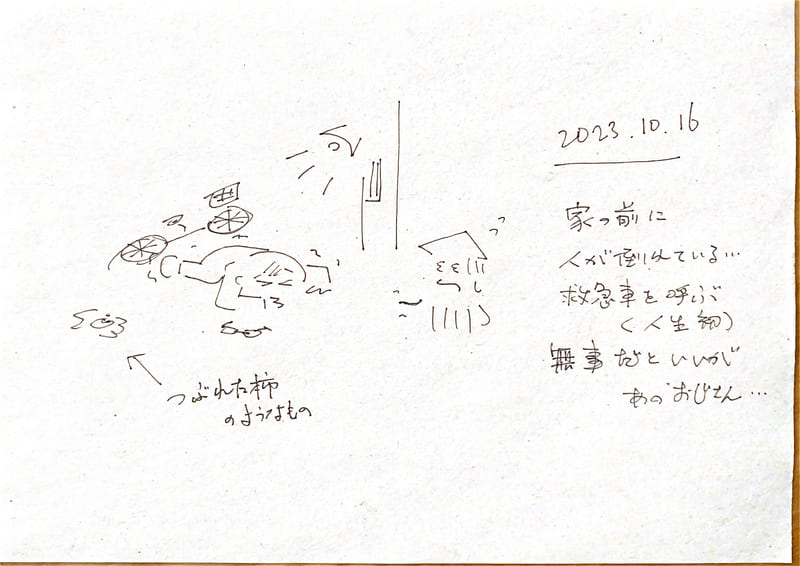 2023.10.16
家の前に
人が倒れている…
救急車を呼ぶ
(人生初)
無事だといいが
あのおじさん…
つぶれた柿
のようなもの